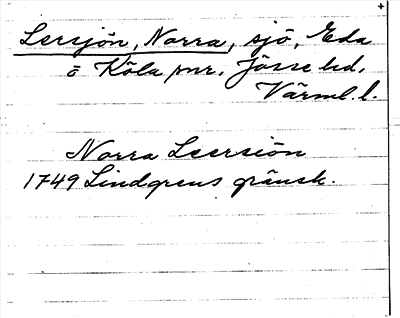 Lersjön, Norra, sjö, Eda
o Köla snr, Jösse hd,
Värml. l.
Norra Leersiön
1749 Lindgrens gränsk.